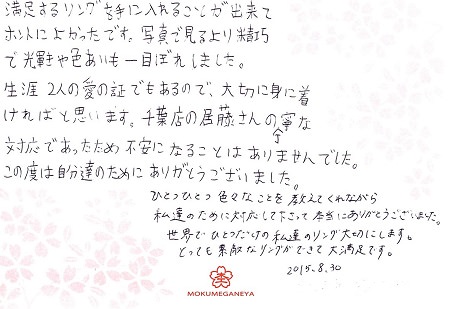 満足するリングを手に入れることが出来て
ホントによかったです。写真で見るより精巧
で光輝きや色あいも一目ぼれしました。
生涯2人の愛の証でもあるので、大切に身に着
ければと思います。千葉店の居藤さんの丁寧な
対応であったため不安になることはありませんでした。
この度は自分達のためにありがとうございました。
ひとつひとつ色々なことを教えてくれながら
私達のために対応して下さって本当にありがとうございました。
世界でひとつだけの私達のリング大切にします。
とっても素敵なリングができて大満足です。
2015.8.30
MOKUMEGANEYA